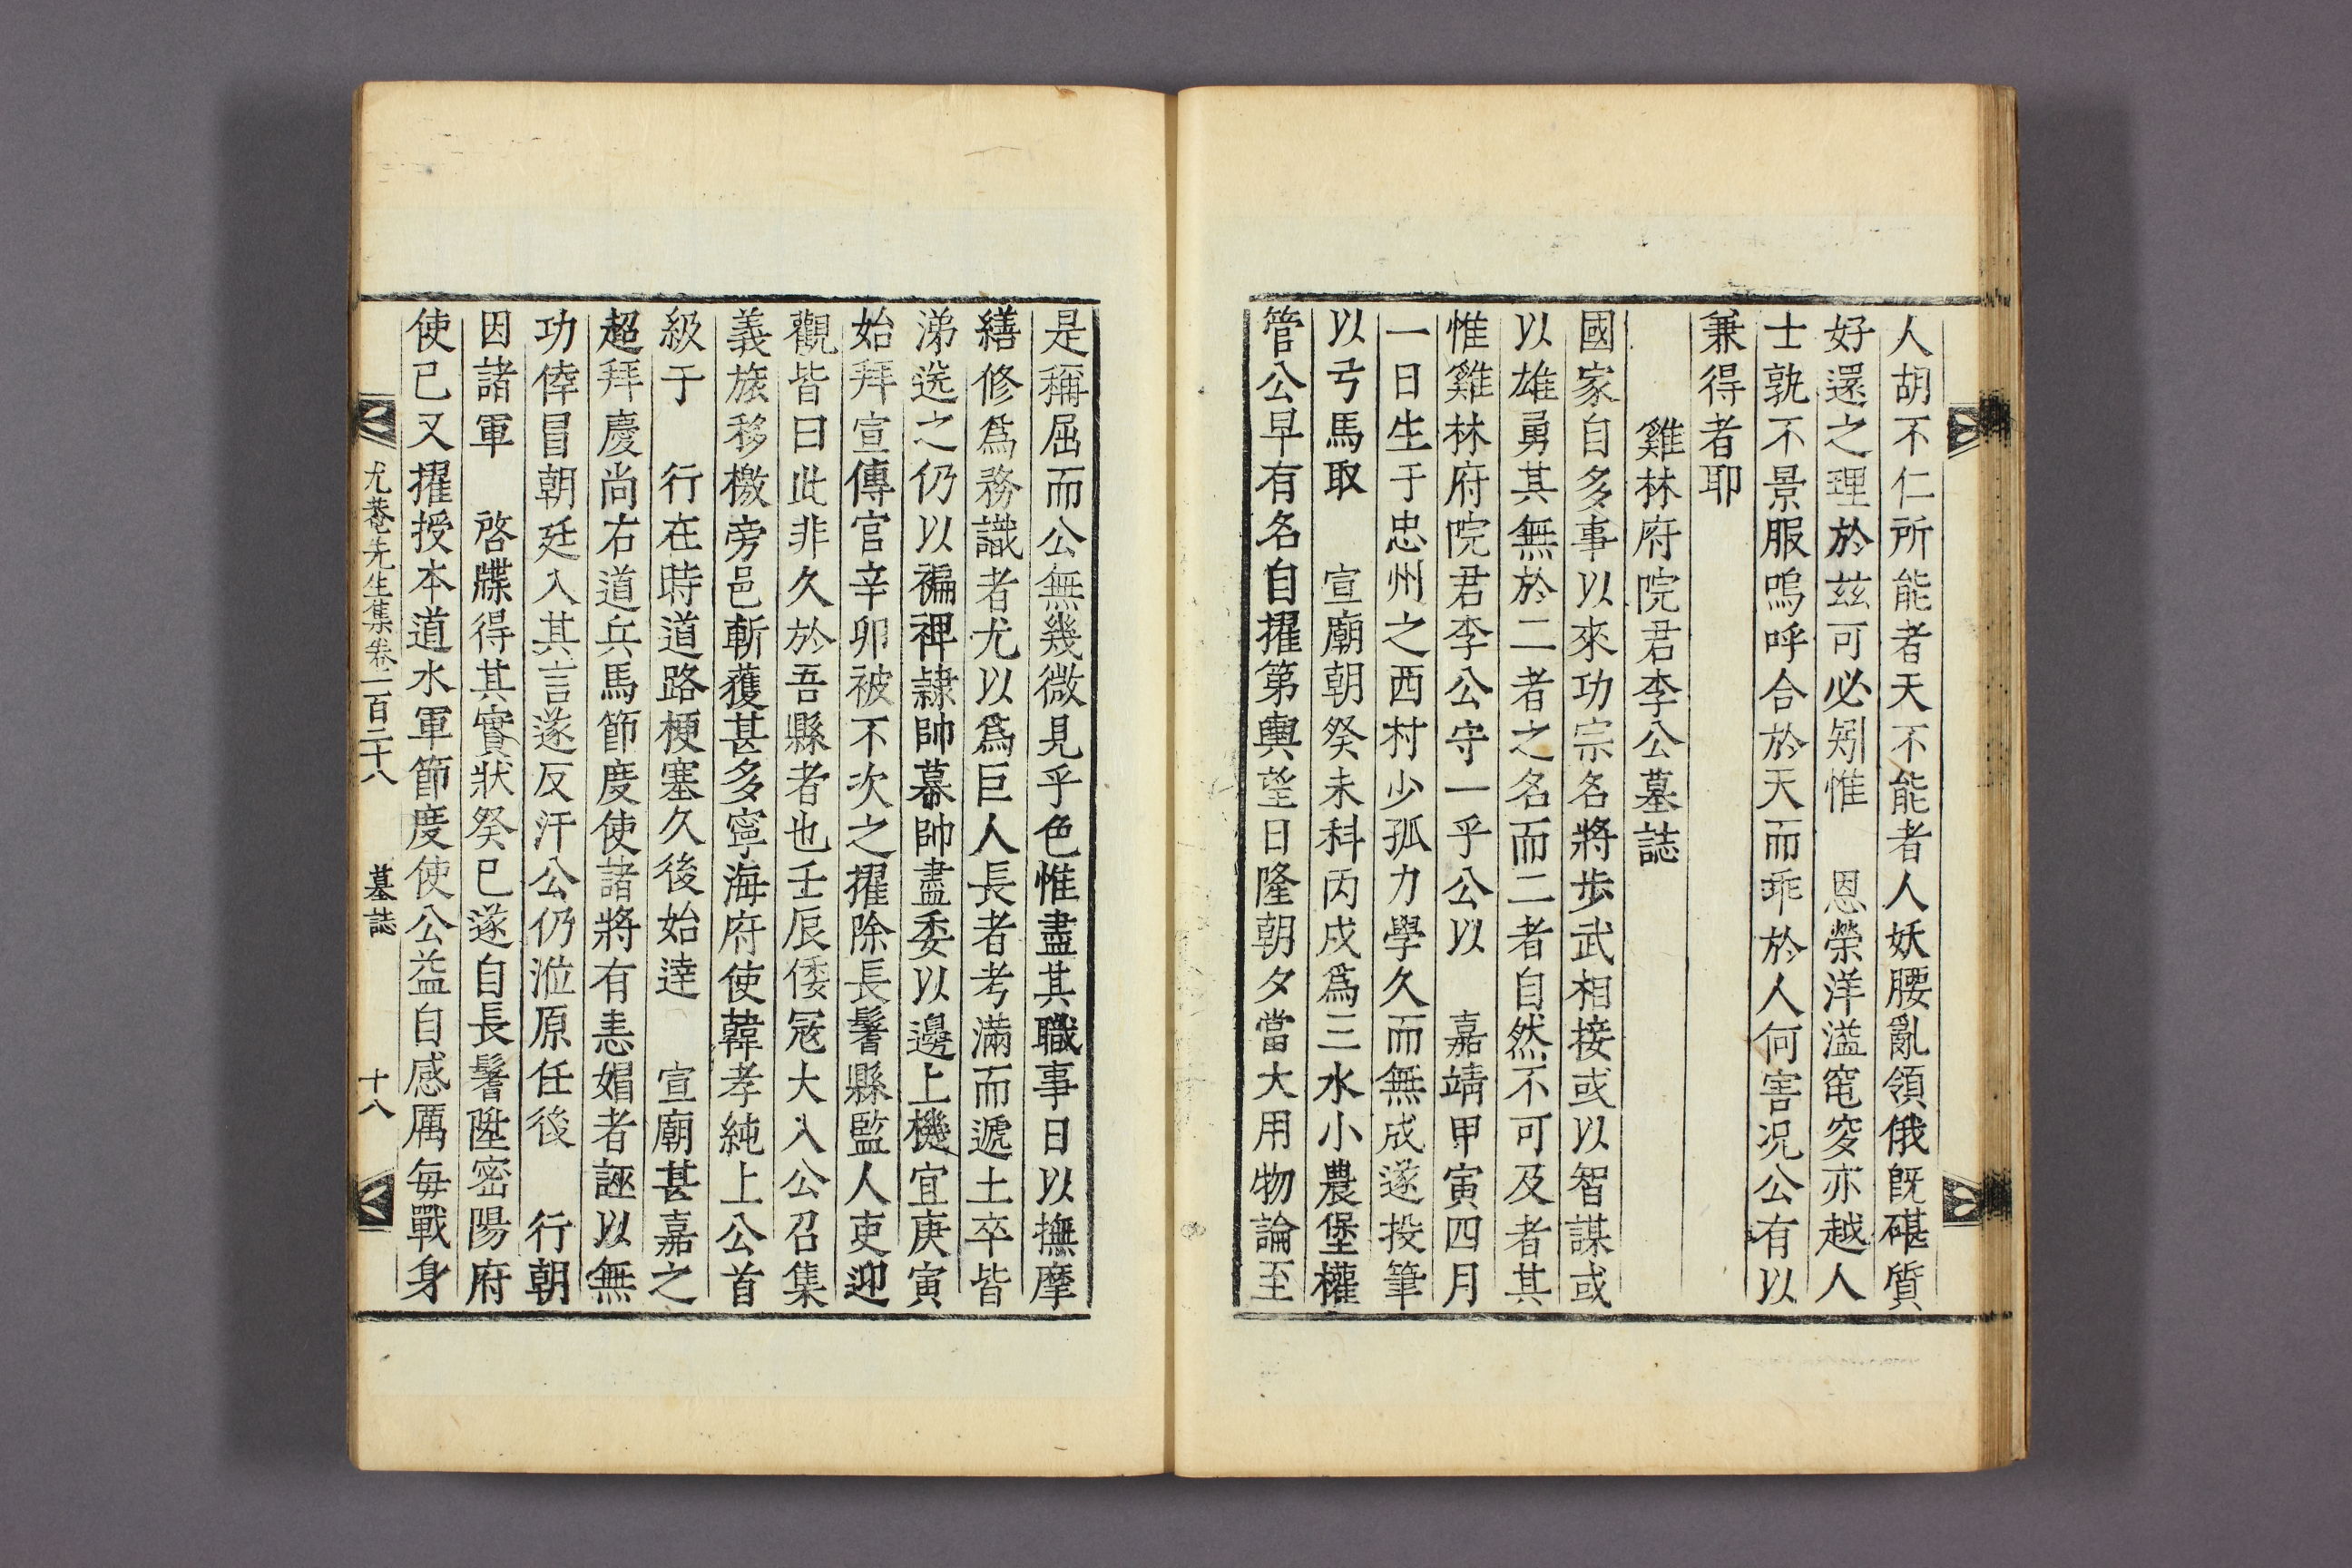 人胡不仁所能者天不能者人妖腰亂領俄旣碪質
好還之理於玆可必矧惟　恩榮洋溢窀穸亦越人
士孰不景服嗚呼合於天而乖於人何害况公有以
兼得者耶
雞林府院君李公墓誌
國家自多事以來功宗名將步武相接或以智謀或
以雄勇其無於二者之名而二者自然不可及者其
惟雞林府院君李公守一乎公以　嘉靖甲寅四月
一日生于忠州之西村少孤力學久而無成遂投筆
以弓馬取　宣廟朝癸未科丙戌爲三水小農堡權
管公早有名自擢第輿望日隆朝夕當大用物論至
是稱屈而公無幾微見乎色惟盡其職事日以撫摩
繕修爲務識者尤以爲巨人長者考滿而遞土卒皆
涕送之仍以褊裨隷帥幕帥盡委以邊上機宜庚寅
始拜宣傳官辛卯被不次之擢除長鬐縣監人吏迎
觀皆曰此非久於吾縣者也壬辰倭冦大入公召集
義旅移檄旁邑斬獲甚多寧海府使韓孝純上公首
級于　行在時道路梗塞久後始達　宣廟甚嘉之
超拜慶尙右道兵馬節度使諸將有恚媢者誣以無
功倖冒朝廷入其言遂反汗公仍涖原任後　行朝
因諸軍　啓牒得其實狀癸巳遂自長鬐陞密陽府
使已又擢授本道水軍節度使公益自感厲每戰身
尤菴先生集卷一百二十八　墓誌　十八